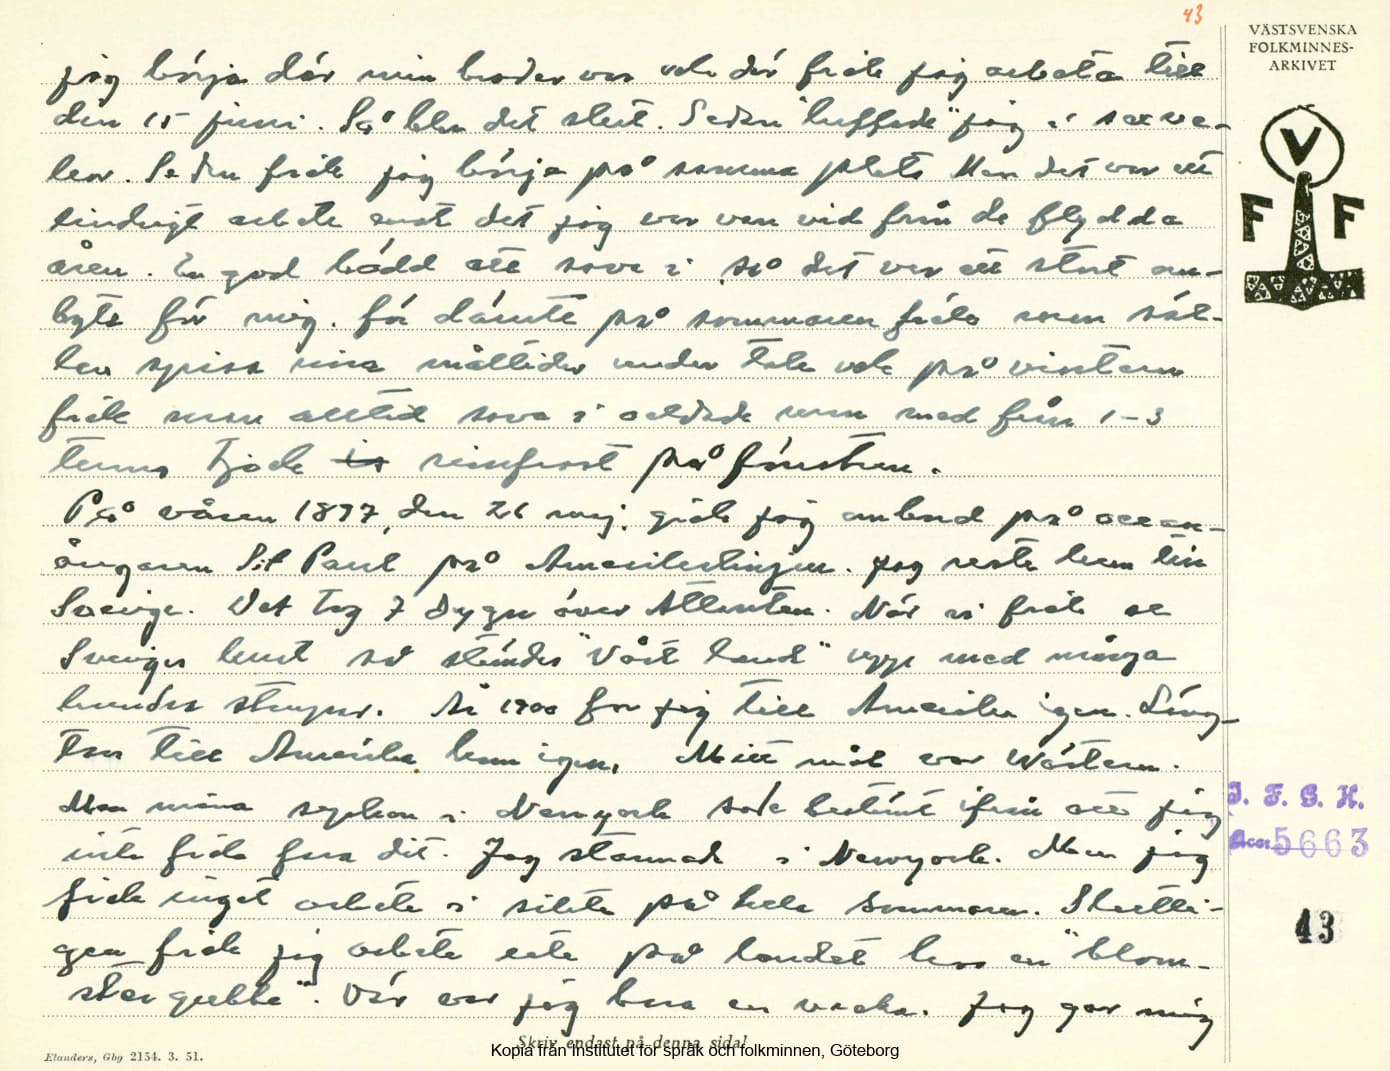 43
VÄSTSVENSKA
FOLKMINNES-
ARKIVET
jag börja där min broder var och där fick jag arbeta till
den 15 juni. Så blev det slut. Sedan "luffade" jag i sex ve-
kor. Sedan fick jag börja på samma plats Men det var ett
sindrigt arbete emot det jag var van vid från de flydda
åren. En god bädd att sova i, så det var ett stort om-
byte för mig. för dämte på sommaren fick man säl-
lan spisa sina måltider under tak och på vintern
fick man alltid sova i oeldade rum med från 1-3
tums tjock rimfrost på fönstren.
På våren 1897, den 26 maj gick jag ombord på ocean-
ångaren S:t Paul på Amerikalinjen. Jag reste hem till
Sverige. Det tog 7 dygn över Atlanten. När vi fick se
Sveriges kust så stämdes "Vårt land" upp med många
hundra strupar. År 1900 for jag till Amerika igen. Läng-
tan till Amerika kom igen. Mitt mål var Wästern.
Men mina syskon i Newyork sade bestämt ifrån att jag
inte fick fara dit. Jag stannade i Newyork. Men jag
fick inget arbete i sitete på hela sommaren. Slutli-
gen fick jag arbete ute på landet hos en "blom-
stergubbe". Där var jag bara en vecka. Jag gav mig
V
F F
I. F. G. H.
Acc. 5663
43
Skriv endast på denna sida!
Elanders, Gbg 2154. 3. 51.
Kopia från Institutet för språk och folkminnen, Göteborg